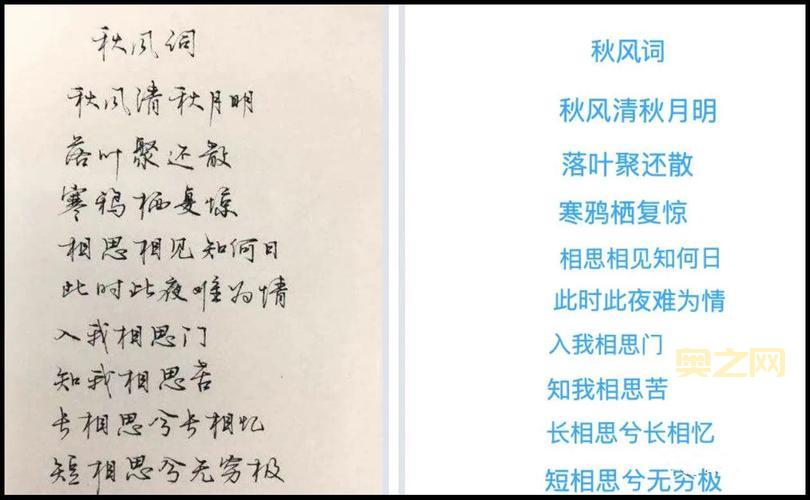 秋风词
秋风清秋月明
落叶聚还散
寒鸦栖复惊
相思相见知何日
此时此夜难为情
入我相思门
知我相思苦
长相思兮长相忆
短相思兮无穷极
秋风词
秋风清秋月明
落叶聚还散
寒鸦栖复惊
相思相见知何日
此时此夜难为情
入我相思门
知我相思苦
长相思兮长相忆
短相思兮无穷极
奥之网